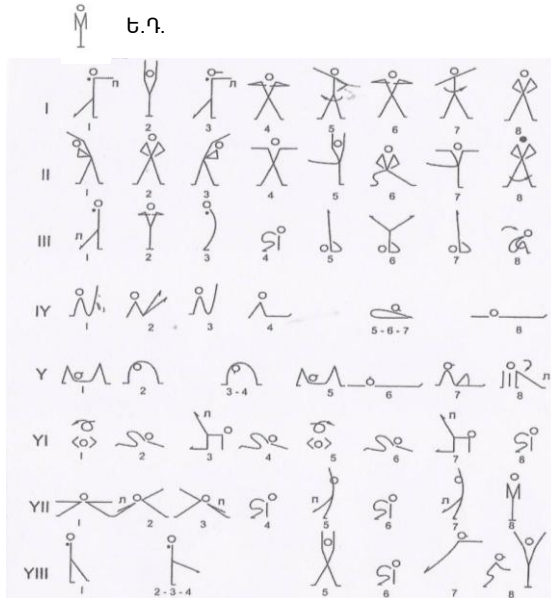 Ե.Դ.
л л
I
1 2 3 4 5 6 7 8
II
1 2 3 4 5 6 7 8
л
III
1 2 3 4 5 6 7 8
IY
1 2 3 4 5-6-7 8
Y л
1 2 3-4 5 6 7 8
л л
YI
1 2 3 4 5 6 7 8
YII л л л л
1 2 3 4 5 6 7 8
YIII
1 2-3-4 5 6 7 8